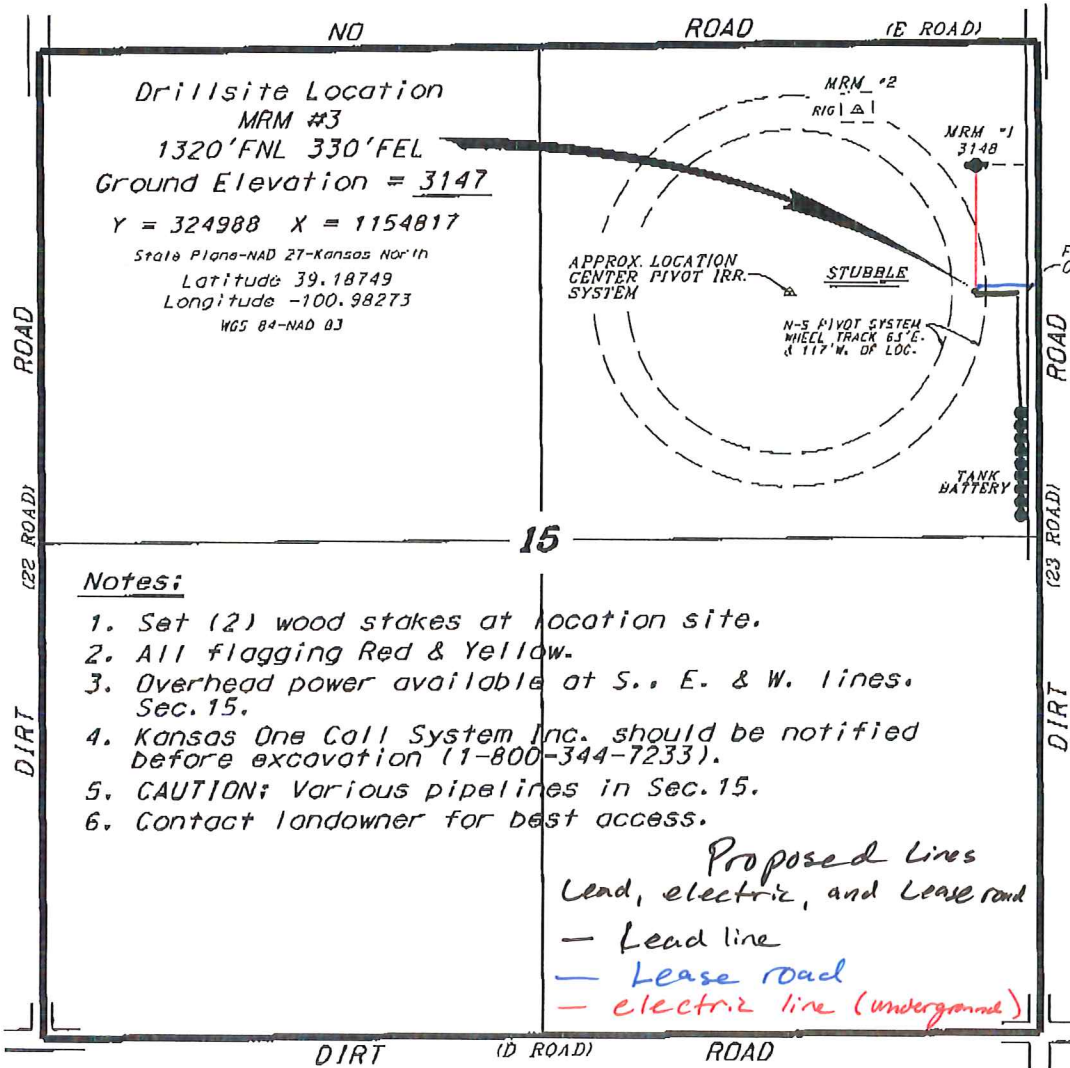 NO ROAD (E ROAD)
Drillsite Location
MRM #3
1320'FNL 330'FEL
Ground Elevation = 3147
Y = 324988 X = 1154817
State Plane-NAD 27-Kansas North
Latitude 39.18749
Longitude -100.98273
WGS 84-NAD 83
MRM #2
RIG
MRM #1
3148
APPROX. LOCATION
CENTER PIVOT IRR.
SYSTEM
STUBBLE
N-S PIVOT SYSTEM
WHEEL TRACK 63'E.
& 117'W. OF LOC.
TANK
BATTERY
ROAD
(22 ROAD)
DIRT
ROAD
(23 ROAD)
DIRT
15
Notes:
1. Set (2) wood stakes at location site.
2. All flagging Red & Yellow.
3. Overhead power available at S.. E. & W. lines.
Sec.15.
4. Kansas One Call System Inc. should be notified
before excavation (1-800-344-7233).
5. CAUTION: Various pipelines in Sec.15.
6. Contact landowner for best access.
Proposed Lines
Lead, electric, and Lease road
— Lead line
— Lease road
— electric line (underground)
DIRT (D ROAD) ROAD